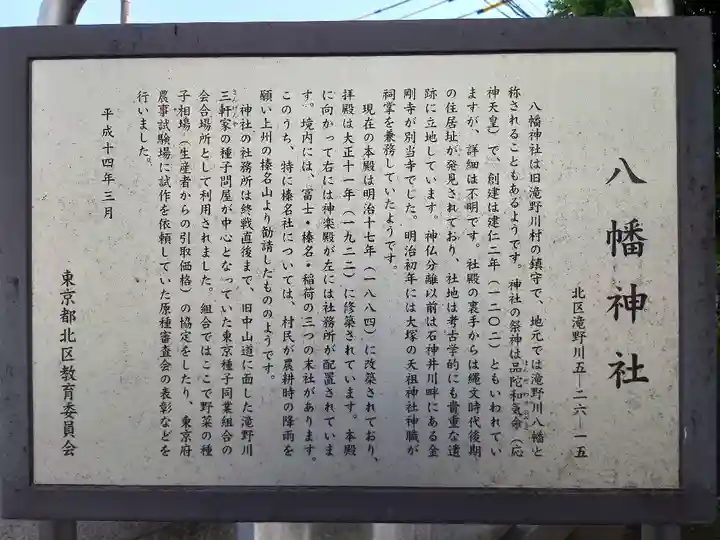 八幡神社
北区滝野川五―二六―一五
八幡神社は旧滝野川村の鎮守で、地元では滝野川八幡と
称されることもあるようです。神社の祭神は品陀和氣命（応
神天皇）で、創建は建仁二年（一二〇二）ともいわれてい
ますが、詳細は不明です。社殿の裏手からは縄文時代後期
の住居址が発見されており、社地は考古学的にも貴重な遺
跡に立地しています。神仏分離以前は石神井川畔にある金
剛寺が別当寺でした。明治初年には大塚の天祖神社神職が
祠掌を兼務していたようです。
現在の本殿は明治十七年（一八八四）に改築されており、
拝殿は大正十一年（一九二二）に修築されています。本殿
に向かって右には神楽殿が左には社務所が配置されていま
す。境内には、富士・榛名・稲荷の三つの末社があります。
このうち、特に榛名社については、村民が農耕時の降雨を
願い上州の榛名山より勧請したもののようです。
神社の社務所は終戦直後まで、旧中山道に面した滝野川
三軒家の種子問屋が中心となっていた東京種子同業組合の
会合場所として利用されました。組合ではここで野菜の種
子相場（生産者からの引取価格）の協定をしたり、東京府
農事試験場に試作を依頼していた原種審査会の表彰などを
行いました。
平成十四年三月
東京都北区教育委員会